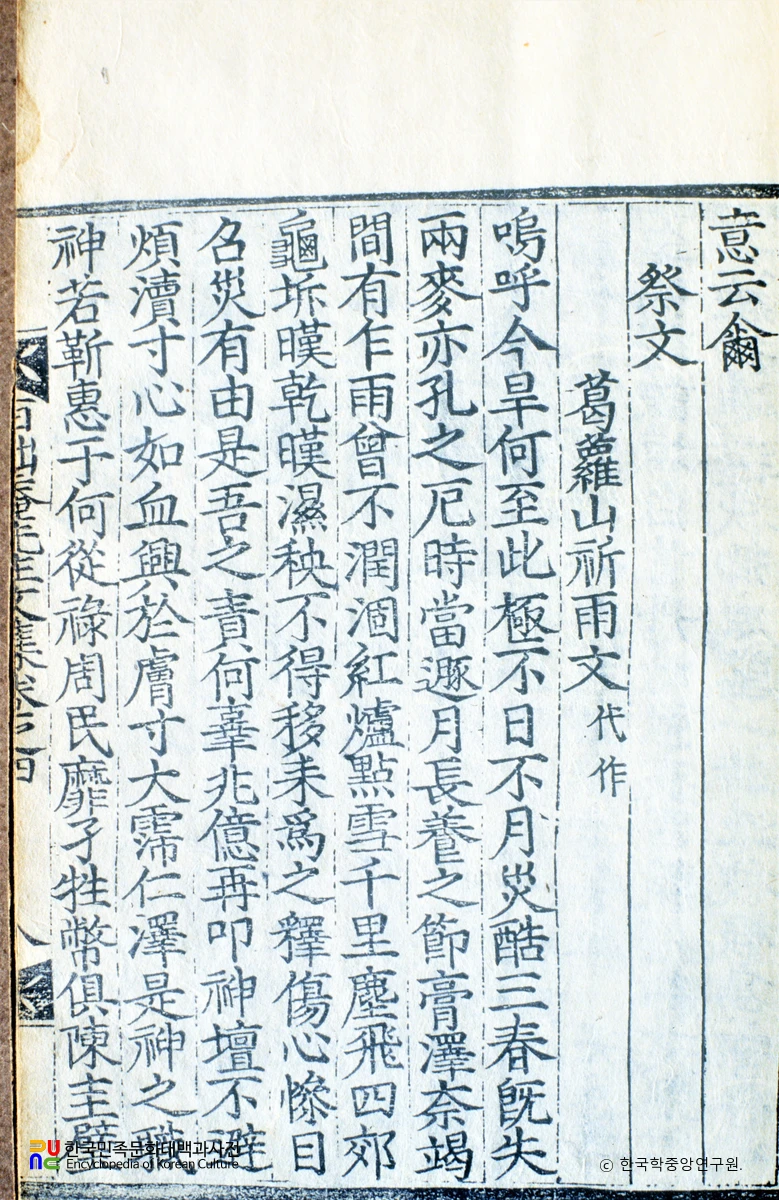 意云爾
祭文
葛蘿山祈雨文 代作
嗚呼今旱何至此極不日不月災酷三春旣失
兩麥亦孔之厄時當遯月長養之節膏澤奈竭
間有乍雨曾不潤涸紅爐點雪千里塵飛四郊
龜坼暵乾暵濕秧不得移耒爲之釋傷心慘目
召災有由是吾之責何辜兆億再叩神壇不避
煩瀆寸心如血興於膚寸大霈仁澤是神之職
神若靳惠于何從祿周民靡孑牲幣俱陳圭璧
한국민족문화대백과사전
Encyclopedia of Korean Culture
© 한국학중앙연구원.